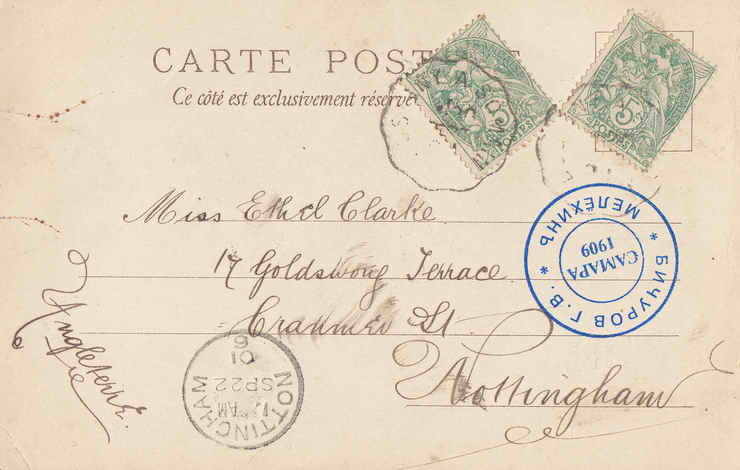 CARTE POSTALE
Ce côté est exclusivement réservé
5c
POSTES
5c
POSTES
Miss Ethel Clarke
17 Goldswong Terrace
Cranmer St.
Nottingham
Yngleterre
NOTTINGHAM
AM
SP 22
01
БИЧУРОВ Г.В. * МЕЛЁХИНЪ *
САМАРА
1909